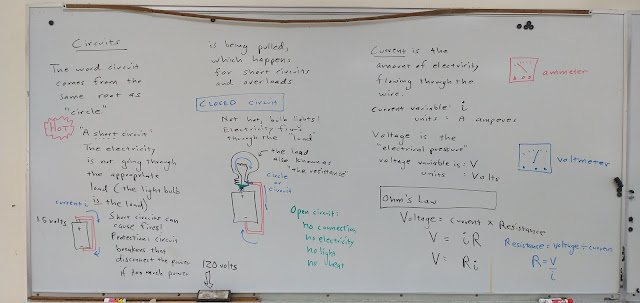 Circuits
The word circuit
comes from the
same root as
"circle"
HOT
"A short circuit:
The electricity
is not going through
the appropriate
load (the light bulb
is the load)
current i
1.5 volts
Short circuits can
cause fires!
Protection: circuit
breakers that
disconnect the power
if too much power
is being pulled,
which happens
for short circuits
and overloads
CLOSED Circuit
Not hot, bulb lights!
Electricity flows
through the "load"
the load
also known as
"the resistance"
circle
or
circuit
Open circuit:
no connection
no electricity
no light
no heat
120 volts
Current is the
amount of electricity
flowing through the
wire.
current variable: i
units: A amperes
ammeter
Voltage is the
"electrical pressure"
voltage variable is: V
units: Volts
voltmeter
Ohm's Law
Voltage = current x Resistance
V = iR
V = Ri
Resistance = voltage ÷ current
R = V/i